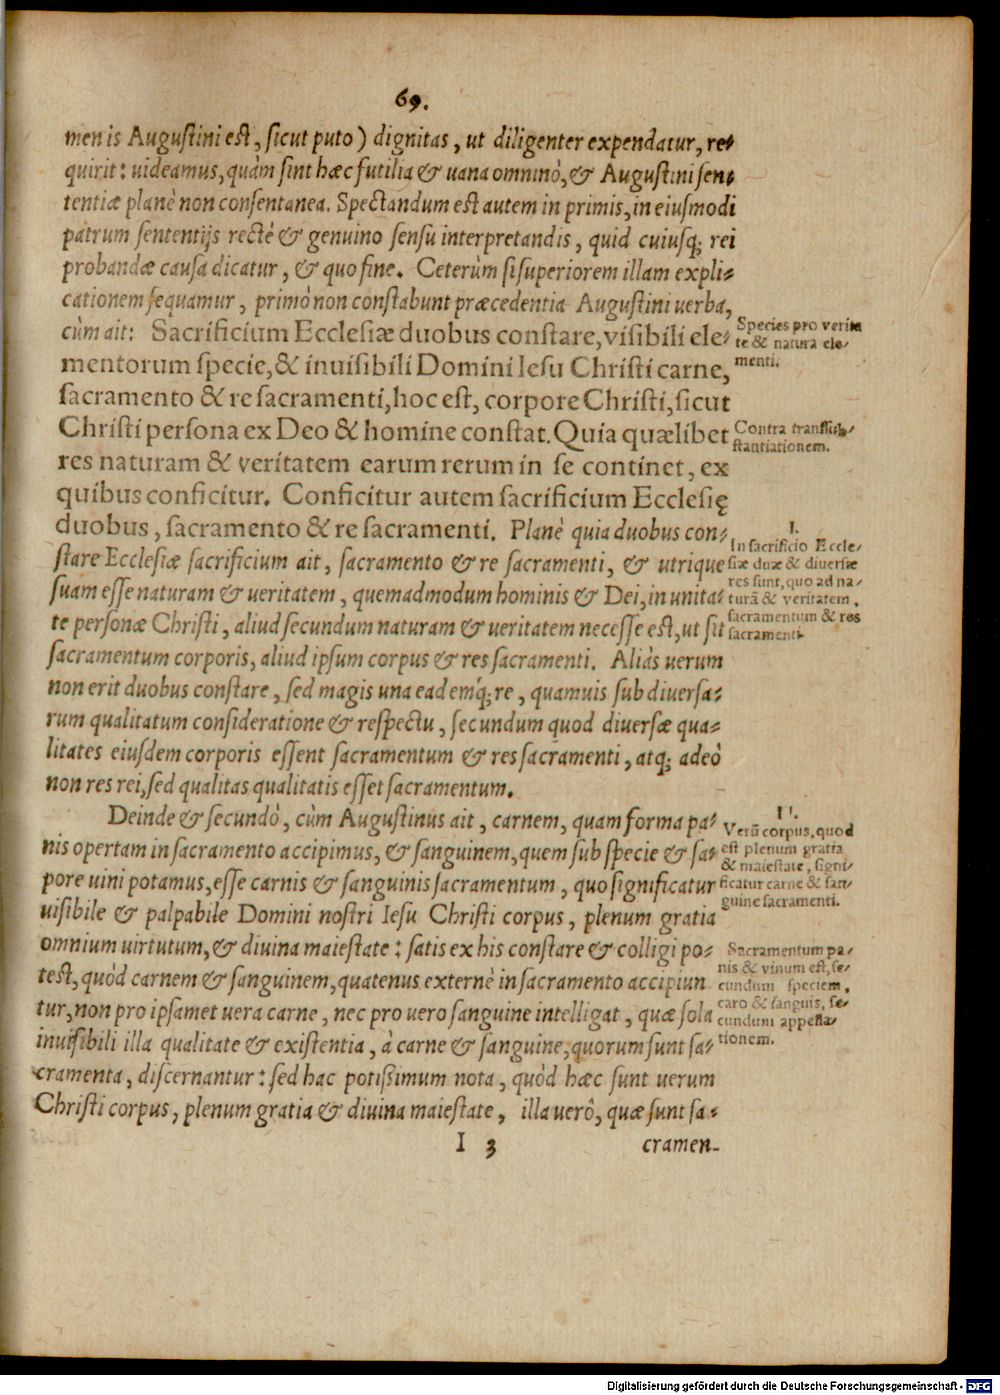 69.
men is Augustini est, sicut puto) dignitas, ut diligenter expendatur, re-
quirit: uideamus, quàm sint hæc futilia & uana omninò, & Augustini sen-
tentiæ planè non consentanea. Spectandum est autem in primis, in eiusmodi
patrum sententijs rectè & genuino sensu interpretandis, quid cuiusq; rei
probandæ causa dicatur, & quo fine. Ceterùm si superiorem illam expli-
cationem sequamur, primò non constabunt præcedentia Augustini uerba,
cùm ait: Sacrificium Ecclesiæ duobus constare, visibili ele-
mentorum specie, & inuisibili Domini Iesu Christi carne,
sacramento & re sacramenti, hoc est, corpore Christi, sicut
Christi persona ex Deo & homine constat. Quia quælibet
res naturam & veritatem earum rerum in se continet, ex
quibus conficitur. Conficitur autem sacrificium Ecclesię
duobus, sacramento & re sacramenti. Planè quia duobus con-
stare Ecclesiæ sacrificium ait, sacramento & re sacramenti, & utrique
suam esse naturam & ueritatem, quemadmodum hominis & Dei, in unita-
te personæ Christi, aliud secundum naturam & ueritatem necesse est, ut sit
sacramentum corporis, aliud ipsum corpus & res sacramenti. Aliàs uerum
non erit duobus constare, sed magis una eademq́; re, quamuis sub diuersa-
rum qualitatum consideratione & respectu, secundum quod diuersæ qua-
litates eiusdem corporis essent sacramentum & res sacramenti, atq; adeò
non res rei, sed qualitas qualitatis esset sacramentum.
Deinde & secundò, cùm Augustinus ait, carnem, quam forma pa-
nis opertam in sacramento accipimus, & sanguinem, quem sub specie & sa-
pore uini potamus, esse carnis & sanguinis sacramentum, quo significatur
uisibile & palpabile Domini nostri Iesu Christi corpus, plenum gratia
omnium uirtutum, & diuina maiestate: satis ex his constare & colligi po-
test, quòd carnem & sanguinem, quatenus externè in sacramento accipiun
tur, non pro ipsamet uera carne, nec pro uero sanguine intelligat, quæ sola
inuisibili illa qualitate & existentia, à carne & sanguine, quorum sunt sa-
cramenta, discernantur: sed hac potissimum nota, quòd hæc sunt uerum
Christi corpus, plenum gratia & diuina maiestate, illa uerò, quæ sunt sa-
I 3 cramen-
Species pro verita
te & natura ele-
menti.
Contra transsub-
stantiationem.
I.
In sacrificio Eccle-
siæ duæ & diuersæ
res sunt, quo ad na-
turã & veritatem,
sacramentum & res
sacramenti.
II.
Verũ corpus, quod
est plenum gratia
& maiestate, signi-
ficatur carne & san-
guine sacramenti.
Sacramentum pa-
nis & vinum est, se-
cundum speciem,
caro & sanguis, se-
cundum appella-
tionem.
Digitalisierung gefördert durch die Deutsche Forschungsgemeinschaft - DFG